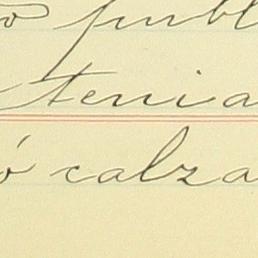 o publ
tenia
ó calza